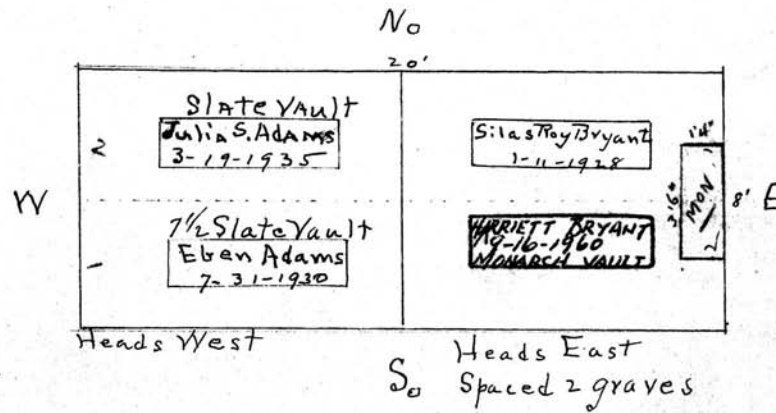 No
20'
Slate Vault
Julia S. Adams
3-19-1935
Silas Roy Bryant
1-11-1928
1'4"
2
W
3'6"
MON
8'
E
7 1/2 Slate Vault
Eben Adams
7-31-1930
HARRIETT BRYANT
9-16-1960
MONARCH VAULT
1
2
Heads West
Heads East
So
Spaced 2 graves